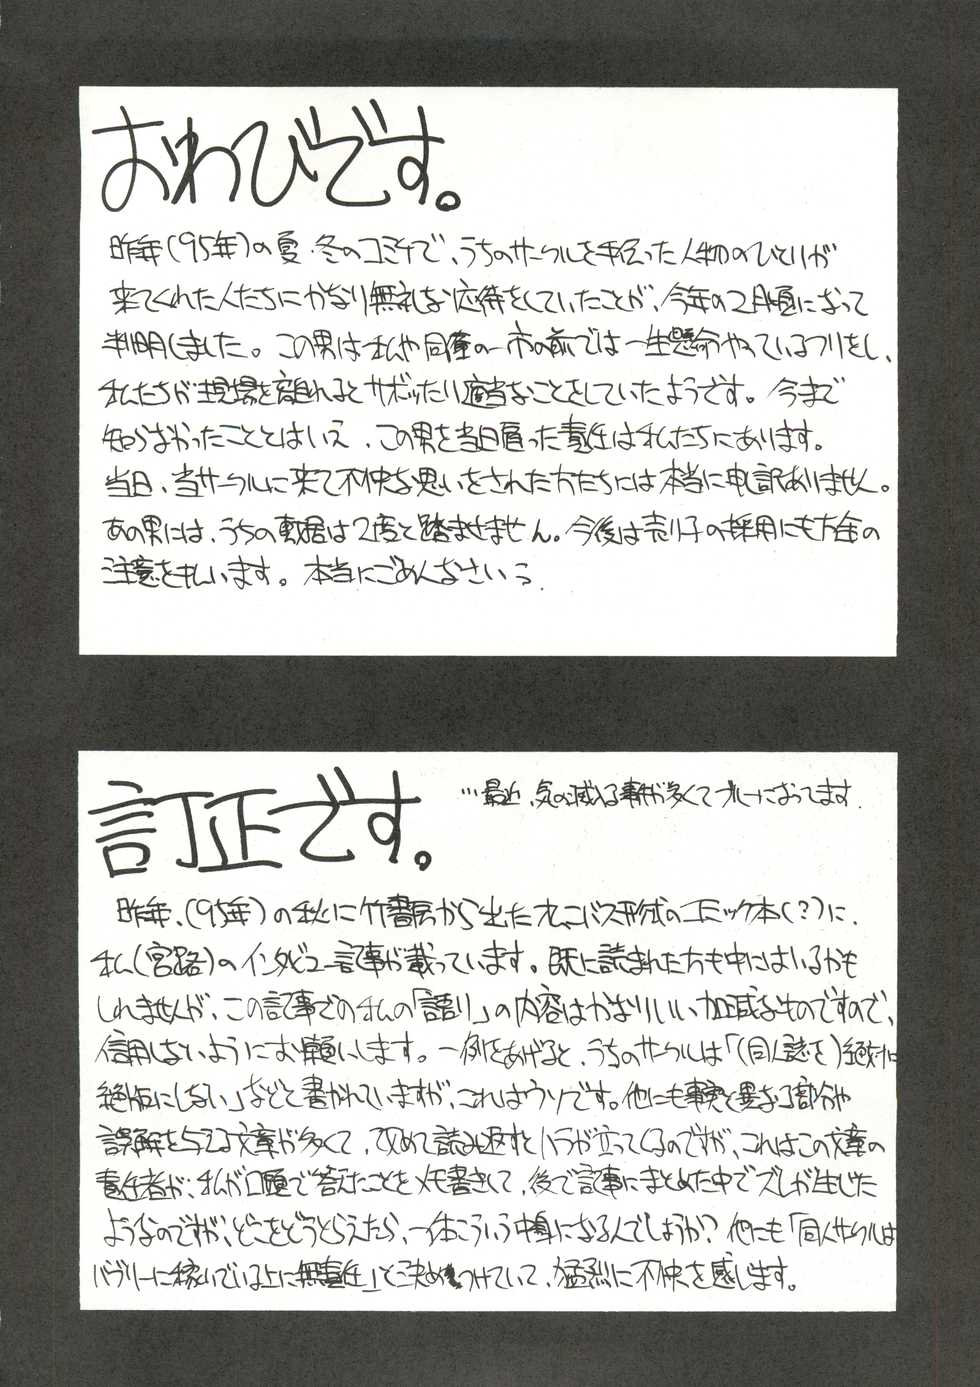 おわびです。
昨年(95年)の夏・冬のコミケで、うちのサークルを手伝った人物のひとりが
来てくれた人たちにかなり無礼な応待をしていたことが、今年の2月頃になって
判明しました。この男は私や同僚の一市の前では一生懸命やっているつりをし、
私たちが現場を離れるとサボッたり適当なことをしていたようです。今まで
知らなかったこととはいえ、この男を当日雇った責任は私たちにあります。
当日、当サークルに来て不快な思いをされた方たちには本当に申し訳ありません。
あの男には、うちの敷居は2度と踏ませません。今後は売り子の採用にも万全の
注意を払います。本当にごめんなさいっ.
訂正です。
…最近、気の滅入る事が多くてブルーになってます.
昨年、(95年)の秋に竹書房から出たオムニバス形式のコミック本(?)に、
私(宮路)のインタビュー記事が載っています。既に読まれた方も中にはいるかも
しれませんが、この記事での私の「語り」の内容はかなりいい加減なものですので、
信用しないようにお願いします。一例をあげると、うちのサークルは「(同人誌を)絶対に
絶版にしない」などと書かれていますが、これはウソです。他にも事実と異なる部分や
誤解を与える文章が多くて、改めて読み返すとハラが立ってくるのですが、これはこの文章の
責任者が、私が口頭で答えたことをメモ書きして、後で記事にまとめた中でズレが生じた
ようなのですが、どこをどうとらえたら、一体こういう中身になるんでしょうか?他にも「同人サークルは
バブリーに稼いでいる上に無責任」と決めつけていて、猛烈に不快を感じます。